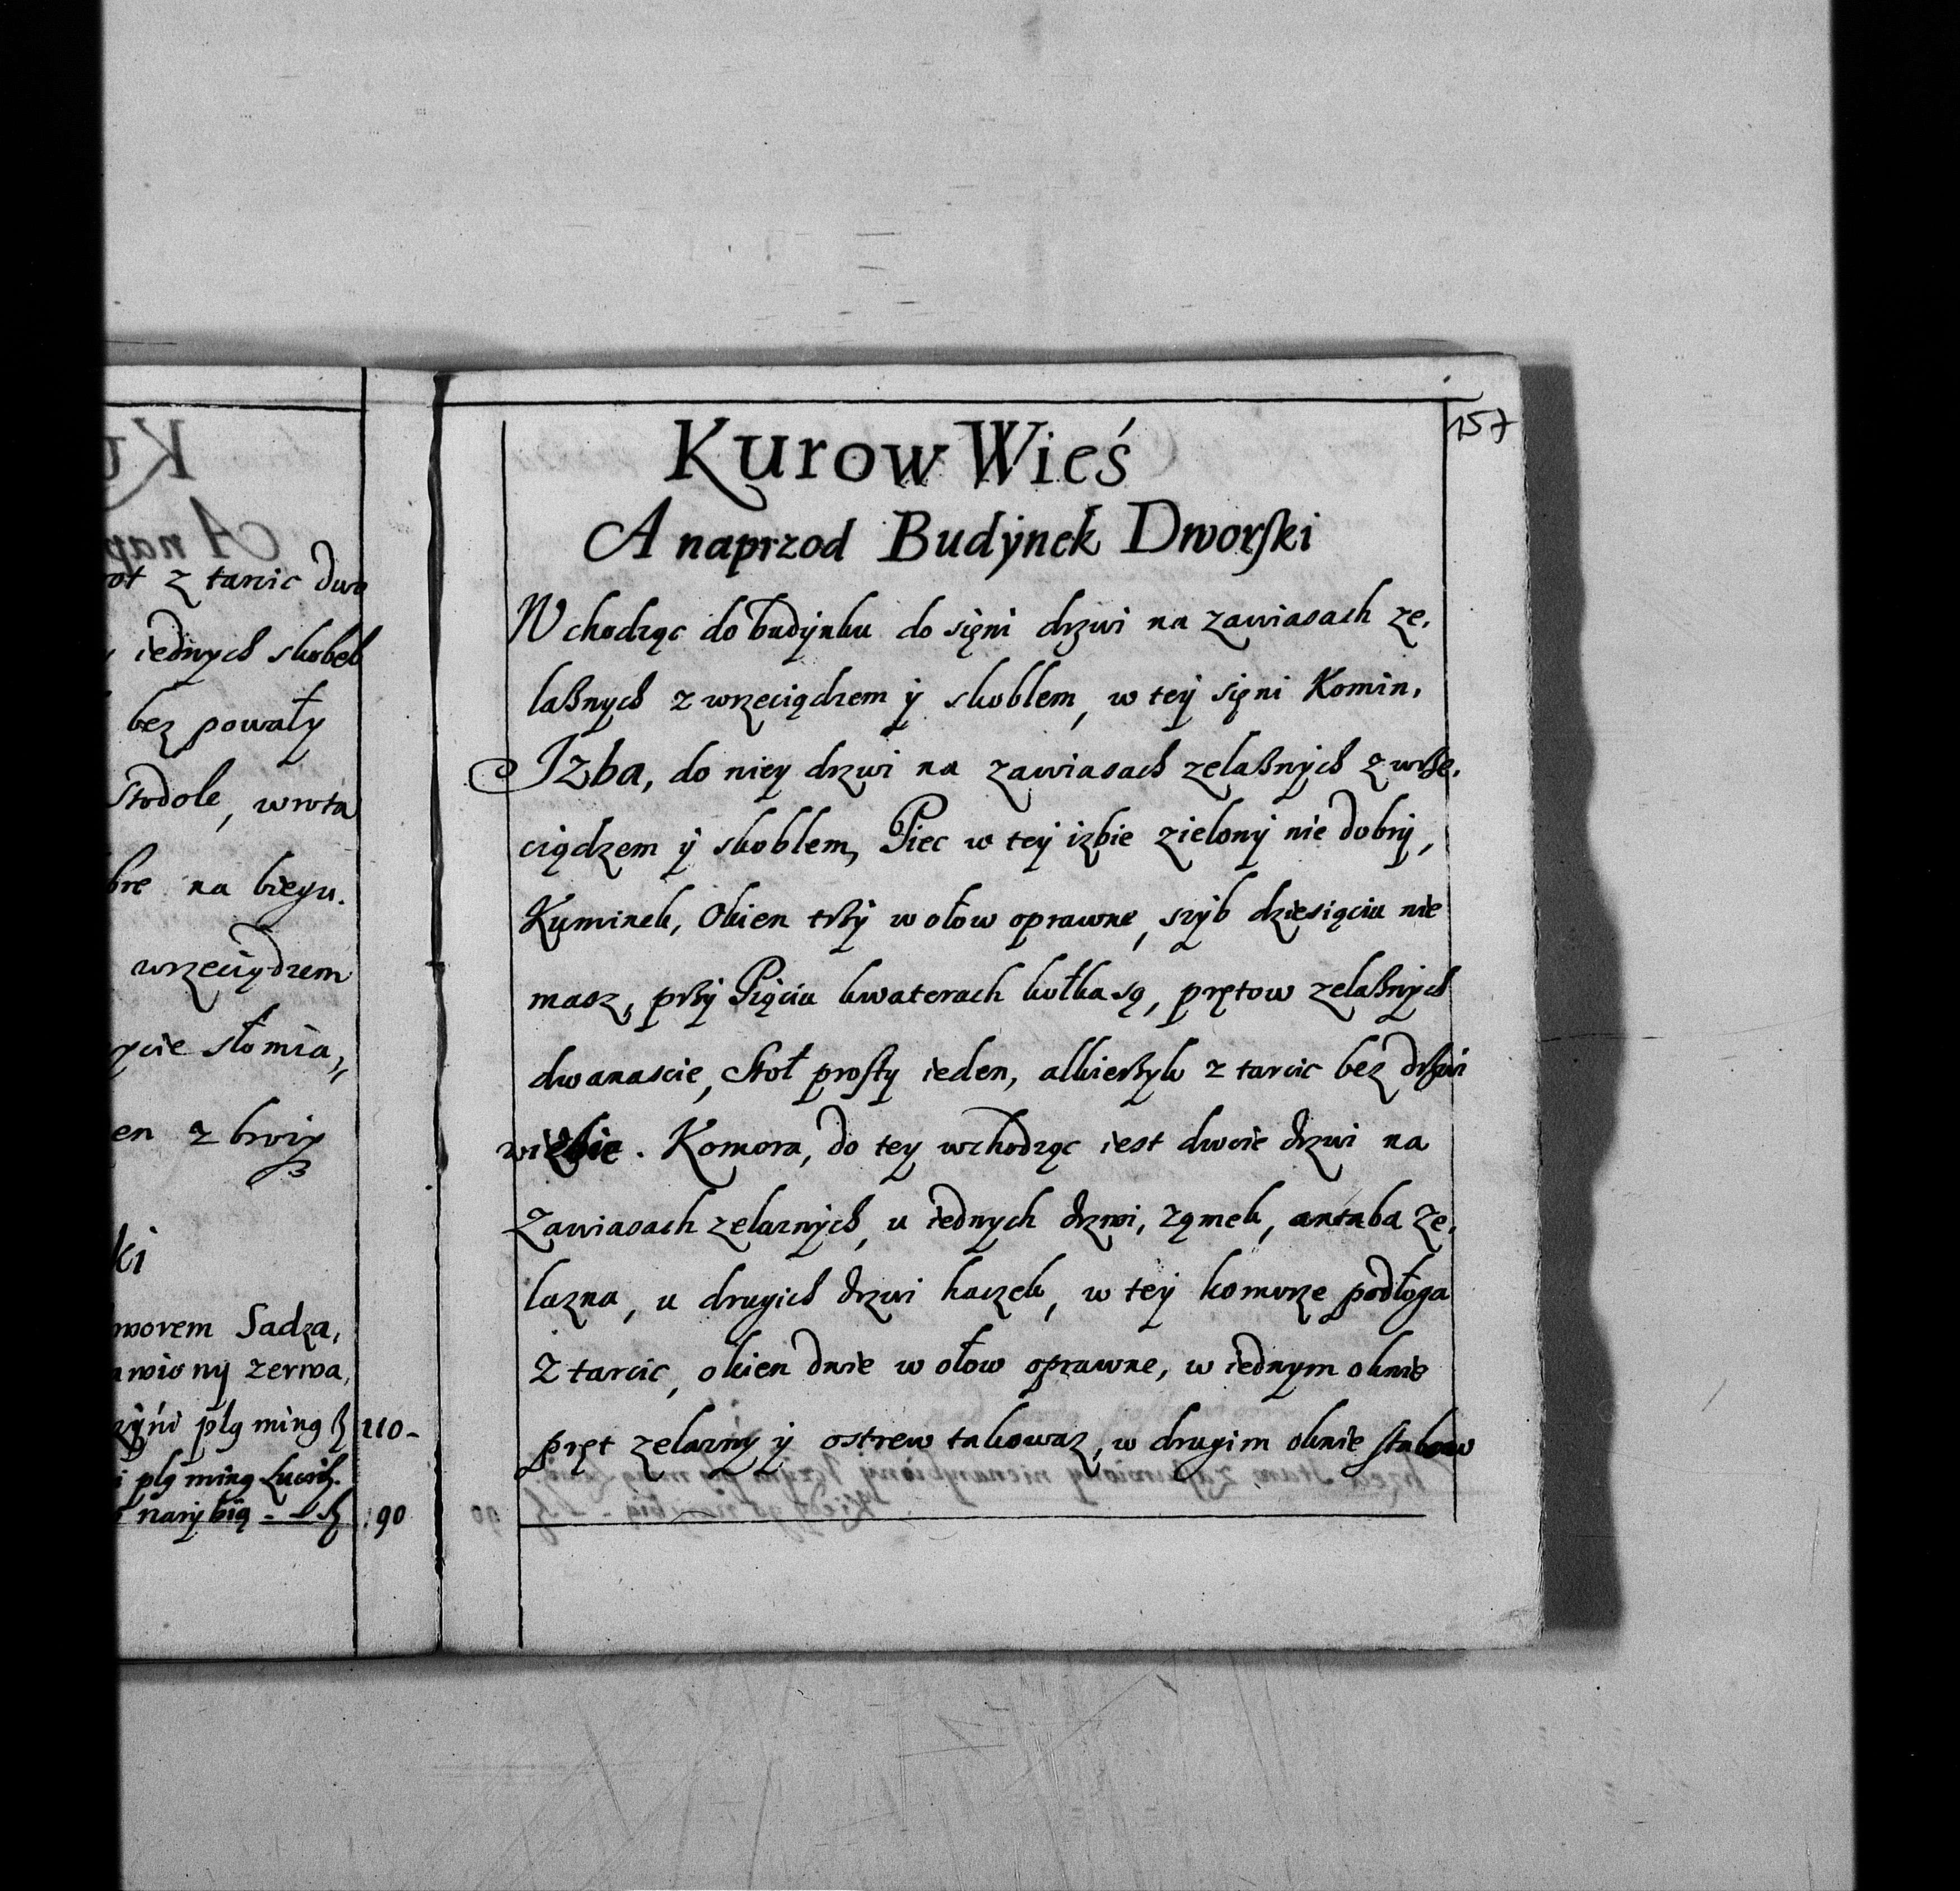 ot z tarcic dwo
iednych skobel
bez powały
Stodole, wrota
bre na biegu.
wrzeciądzem
ycie słomia,,
en z browi
ki
worem Sadza,
wiony zerwa,
110-
narybią
90
157
Kurow Wieś
A naprzod Budÿnek Dworſki
Wchodząc do budÿnku do sięni drzwi na zawiasach ze,
laßnych z wrzeciądzem ÿ skoblem, w teÿ sięni Komin,
Izba, do niey drzwi na zawiasach zelaßnÿch z wrße,
ciądzem ÿ skoblem, Piec w teÿ izbie zielonÿ nie dobrÿ,
Kuminek, Okien trßÿ w ołow oprawne, szÿb dziesiąciu nie
masz, prßÿ Pięciu kwaterach kołka są, prętow zelaßnÿch
dwanascie, Stoł proſty ieden, alkierßyk z tarcic bez drßwi
wizbie. Komora, do tey wchodząc iest dwoie drzwi na
zawiasach zelaznÿch, u iednych drzwi, ząmek, antaba ze,
lazna, u drugich drzwi haczek, w teÿ komorze podłoga
z tarcic, okien dwie w ołow oprawne, w iednym oknie
pręt zelaznÿ ÿ ostrew takowaz, w drugim oknie ſtabow